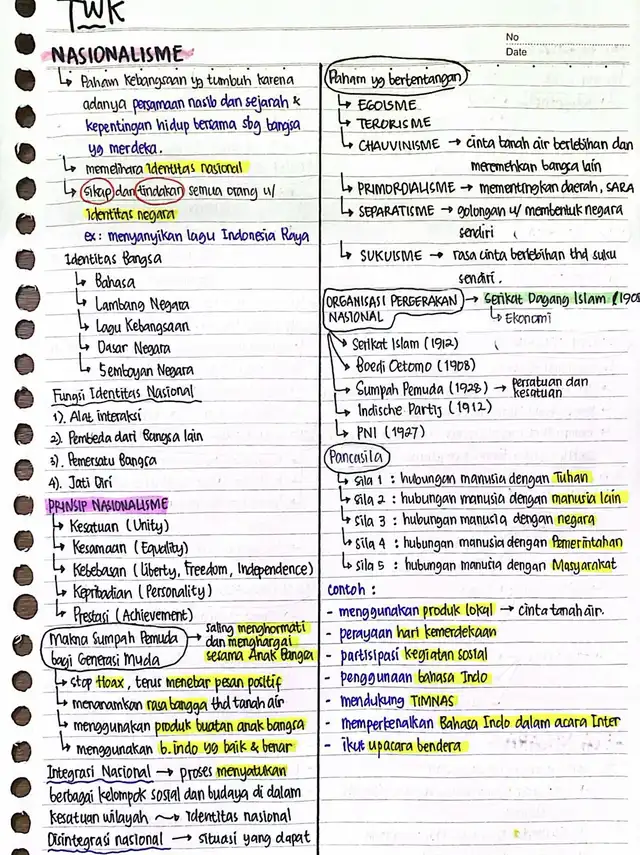 TWK
No
Date
NASIONALISME
↳ Paham kebangsaan yg tumbuh karena
adanya persamaan nasib dan sejarah &
kepentingan hidup bersama sbg bangsa
yg merdeka.
↳ memelihara identitas nasional
↳ sikap dan tindakan semua orang u/
identitas negara
ex: menyanyikan lagu Indonesia Raya
Identitas Bangsa
↳ Bahasa
↳ Lambang Negara
↳ Lagu Kebangsaan
↳ Dasar Negara
↳ Semboyan Negara
Fungsi Identitas Nasional
1). Alat interaksi
2). Pembeda dari Bangsa lain
3). Pemersatu Bangsa
4). Jati Diri
PRINSIP NASIONALISME
↳ Kesatuan (Unity)
↳ Kesamaan (Equality)
↳ Kebebasan (Liberty, Freedom, Independence)
↳ Kepribadian (Personality)
↳ Prestasi (Achievement)
Makna Sumpah Pemuda
bagi Generasi Muda
→ saling menghormati
dan menghargai
sesama Anak Bangsa
↳ stop Hoax, terus menebar pesan positif
↳ menanamkan rasa bangga thd tanah air
↳ menggunakan produk buatan anak bangsa
↳ menggunakan b.indo yg baik & benar
Integrasi Nacional → proses menyatukan
berbagai kelompok sosial dan budaya di dalam
kesatuan wilayah ~> identitas nasional
Disintegrasi nasional → situasi yang dapat
Paham yg bertentangan
↳ EGOISME
↳ TERORISME
↳ CHAUVINISME → cinta tanah air berlebihan dan
meremehkan bangsa lain
↳ PRIMORDIALISME → mementingkan daerah, SARA
↳ SEPARATISME → golongan u/ membentuk negara
sendiri
↳ SUKUISME → rasa cinta berlebihan thd suku
sendiri.
ORGANISASI PERGERAKAN
NASIONAL
→ Serikat Dagang Islam (190
↳ Ekonomi
↳ Serikat Islam (1912)
↳ Boedi Oetomo (1908)
↳ Sumpah Pemuda (1928) → persatuan dan
kesatuan
↳ Indische Partij (1912)
↳ PNI (1927)
Pancasila
↳ Sila 1 : hubungan manusia dengan Tuhan
↳ Sila 2 : hubungan manusia dengan manusia lain
↳ Sila 3 : hubungan manusia dengan negara
↳ Sila 4 : hubungan manusia dengan Pemerintahan
↳ Sila 5 : hubungan manusia dengan Masyarakat
contoh :
- menggunakan produk lokal → cinta tanah air.
- perayaan hari kemerdekaan
- partisipasi kegiatan sosial
- penggunaan bahasa Indo
- mendukung TIMNAS
- memperkenalkan Bahasa Indo dalam acara Inter
- ikut upacara bendera